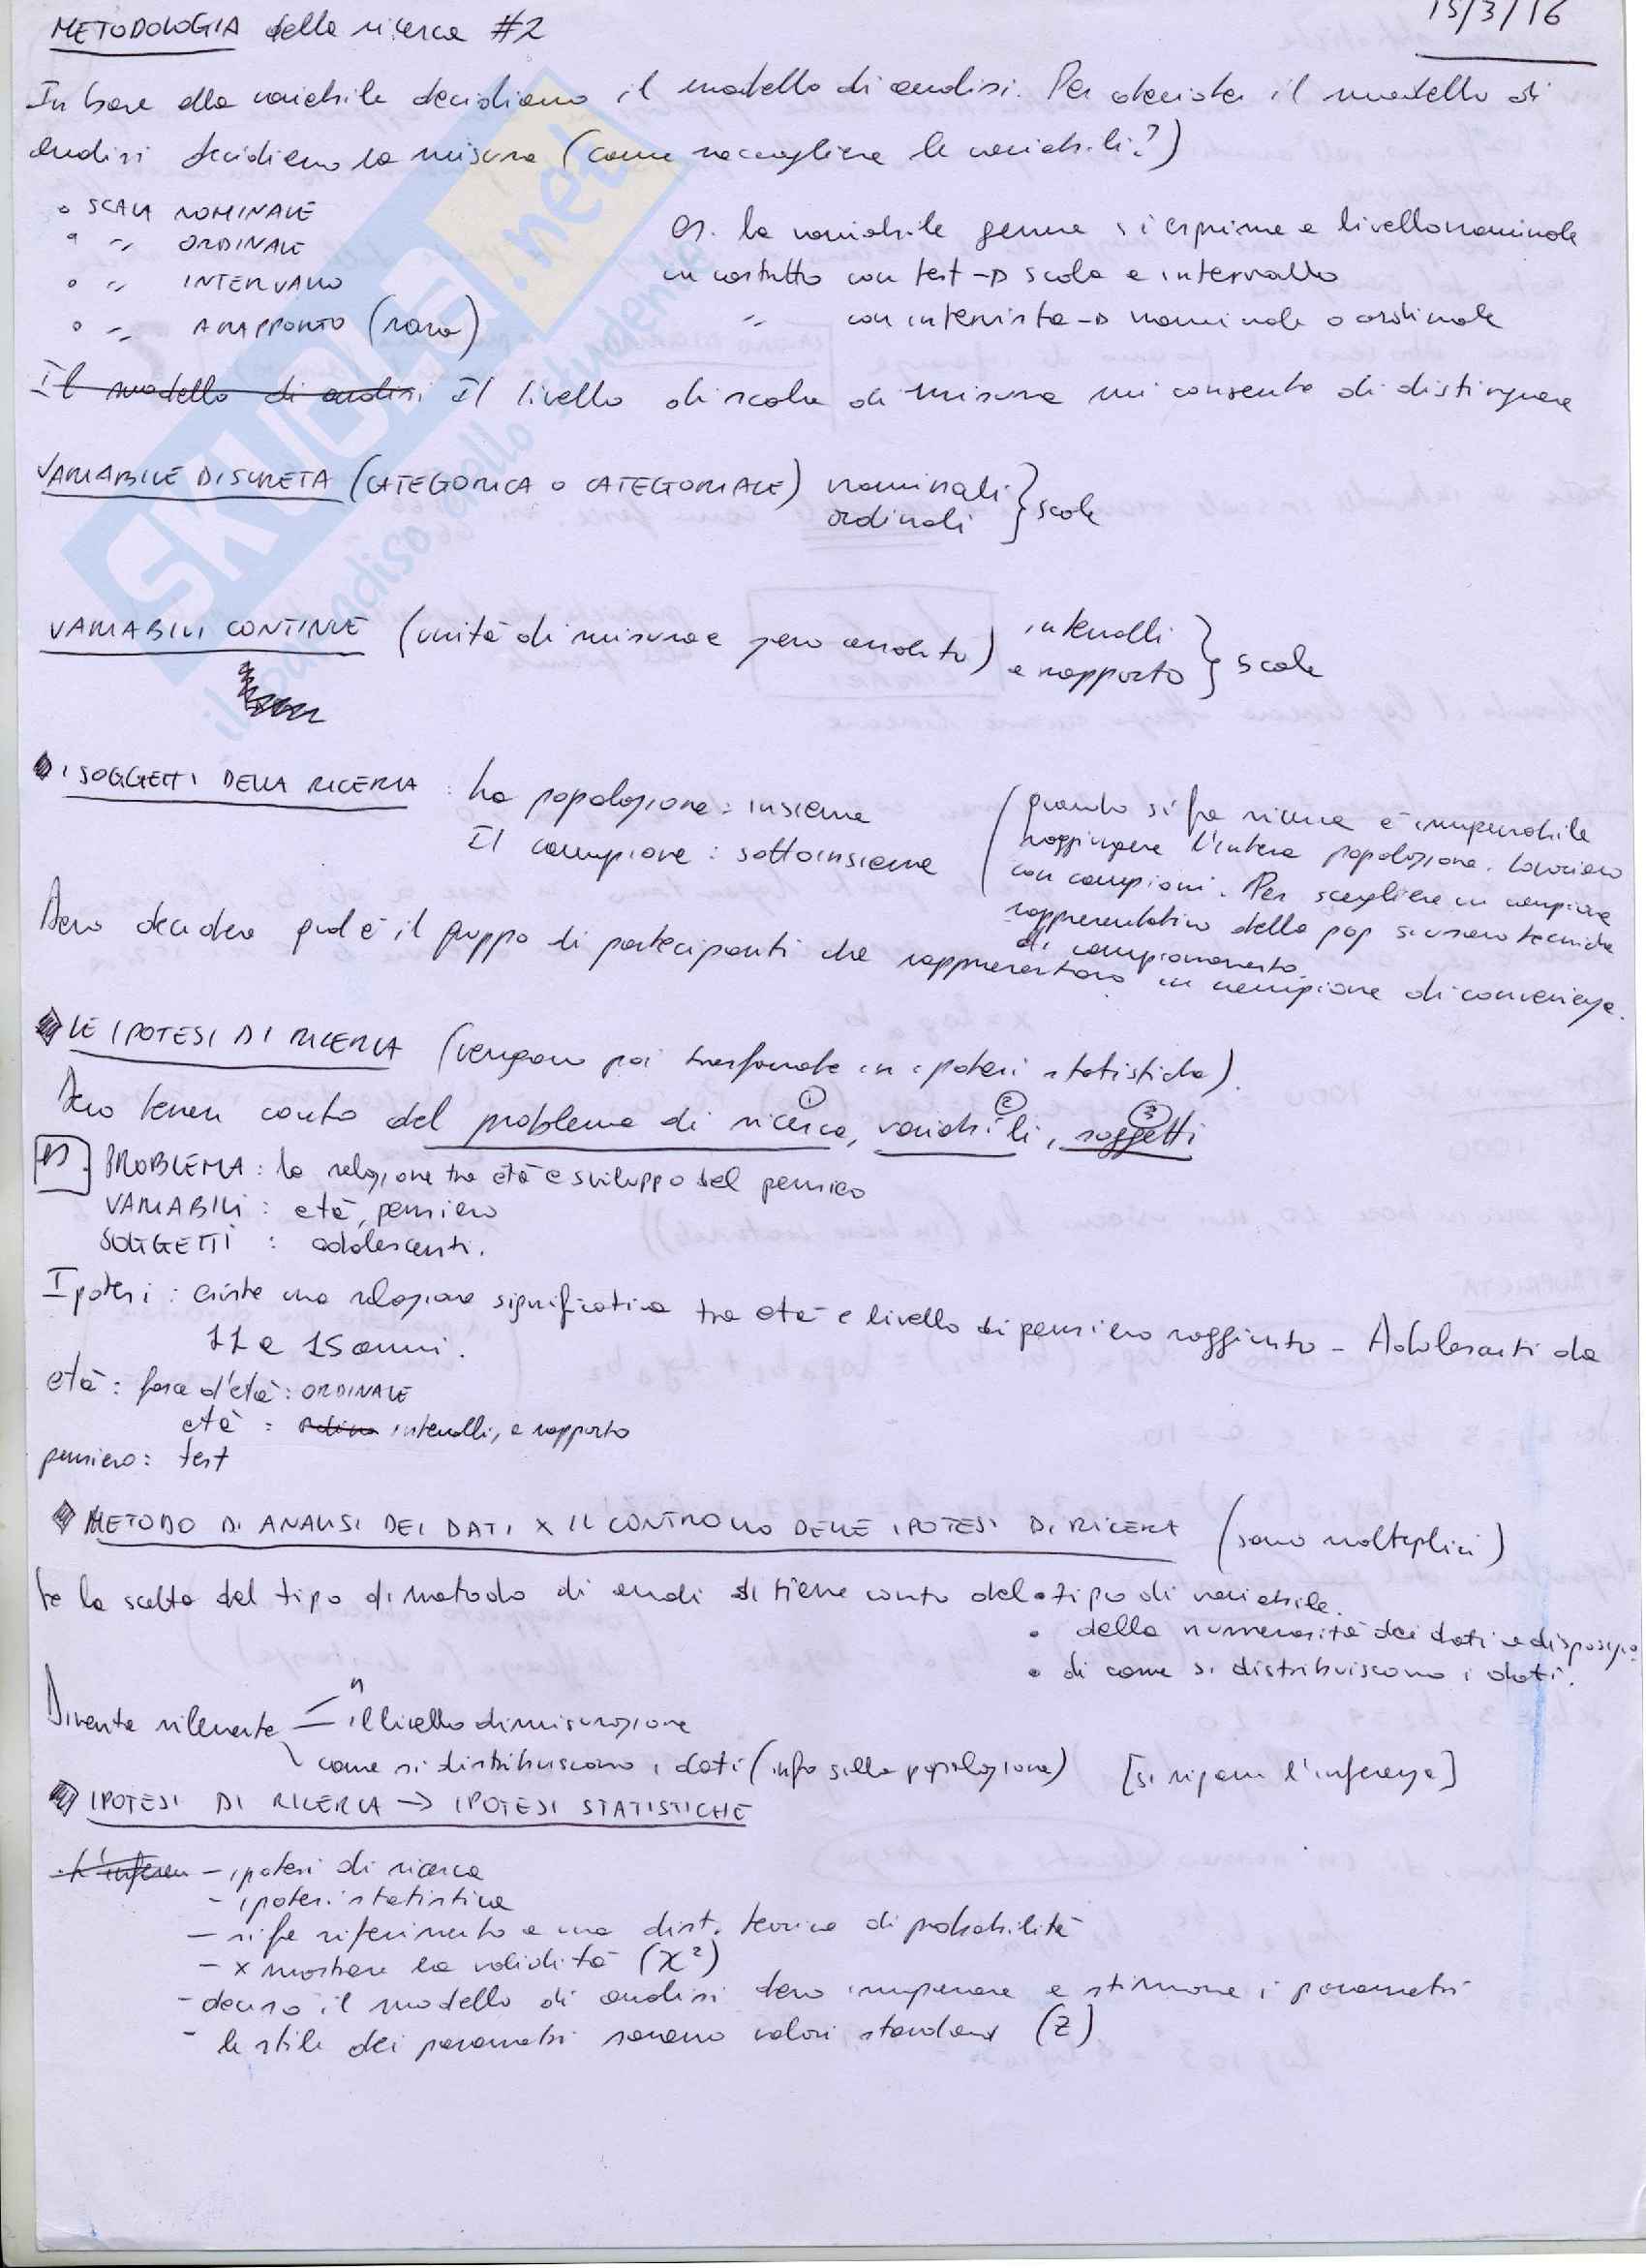 METODOLOGIA della ricerca #2
15/3/16
In base alla variabile decidiamo il modello di analisi. Per decidere il modello di
analisi decidiamo la misura (come raccogliere le variabili?)
SCALA NOMINALE
" ORDINALE
" INTERVALLO
" A RAPPORTO (rara)
es. la variabile genere si esprime a livello nominale
un costrutto con test → scala a intervallo
" con intervista → nominale o ordinale
Il modello di analisi Il livello di scala di misura mi consente di distinguere
VARIABILE DISCRETA (CATEGORICA O CATEGORIALE) nominali
ordinali } scale
VARIABILI CONTINUE (unità di misura e zero assoluto) intervalli
a rapporto } scale
I SOGGETTI DELLA RICERCA : La popolazione: insieme
Il campione: sottoinsieme
(quando si fa ricerca è improbabile
raggiungere l'intera popolazione. Lavoriamo
con campioni. Per scegliere un campione
rappresentativo della pop si usano tecniche
di campionamento.
Devo decidere qual è il gruppo di partecipanti che rappresentano un campione di convenienza.
LE IPOTESI DI RICERCA (vengono poi trasformate in ipotesi statistiche).
Devo tener conto del problema di ricerca, variabili, soggetti
① ② ③
es. PROBLEMA: la relazione tra età e sviluppo del pensiero
VARIABILI: età, pensiero
SOGGETTI : adolescenti.
Ipotesi: esiste una relazione significativa tra età e livello di pensiero raggiunto - Adolescenti da
11 a 15 anni.
età: fasce d'età: ORDINALE
età : intervalli, a rapporto
pensiero: test
METODO DI ANALISI DEI DATI x IL CONTROLLO DELLE IPOTESI DI RICERCA (sono molteplici)
la scelta del tipo di metodo di analisi si tiene conto del • tipo di variabile.
• della numerosità dei dati a disposizio
• di come si distribuiscono i dati.
Diventa rilevante n
il livello di misurazione
come si distribuiscono i dati (info sulla popolazione) [si ripara l'inferenza]
IPOTESI DI RICERCA → IPOTESI STATISTICHE
- ipotesi di ricerca
- ipotesi statistica
- si fa riferimento a una dist. teorica di probabilità
- x mostrare la validità (χ²)
- deciso il modello di analisi devo imparare a stimare i parametri
- le stile dei parametri saranno valori standard (Z)
SKUOLA.net
il paradiso dello studente